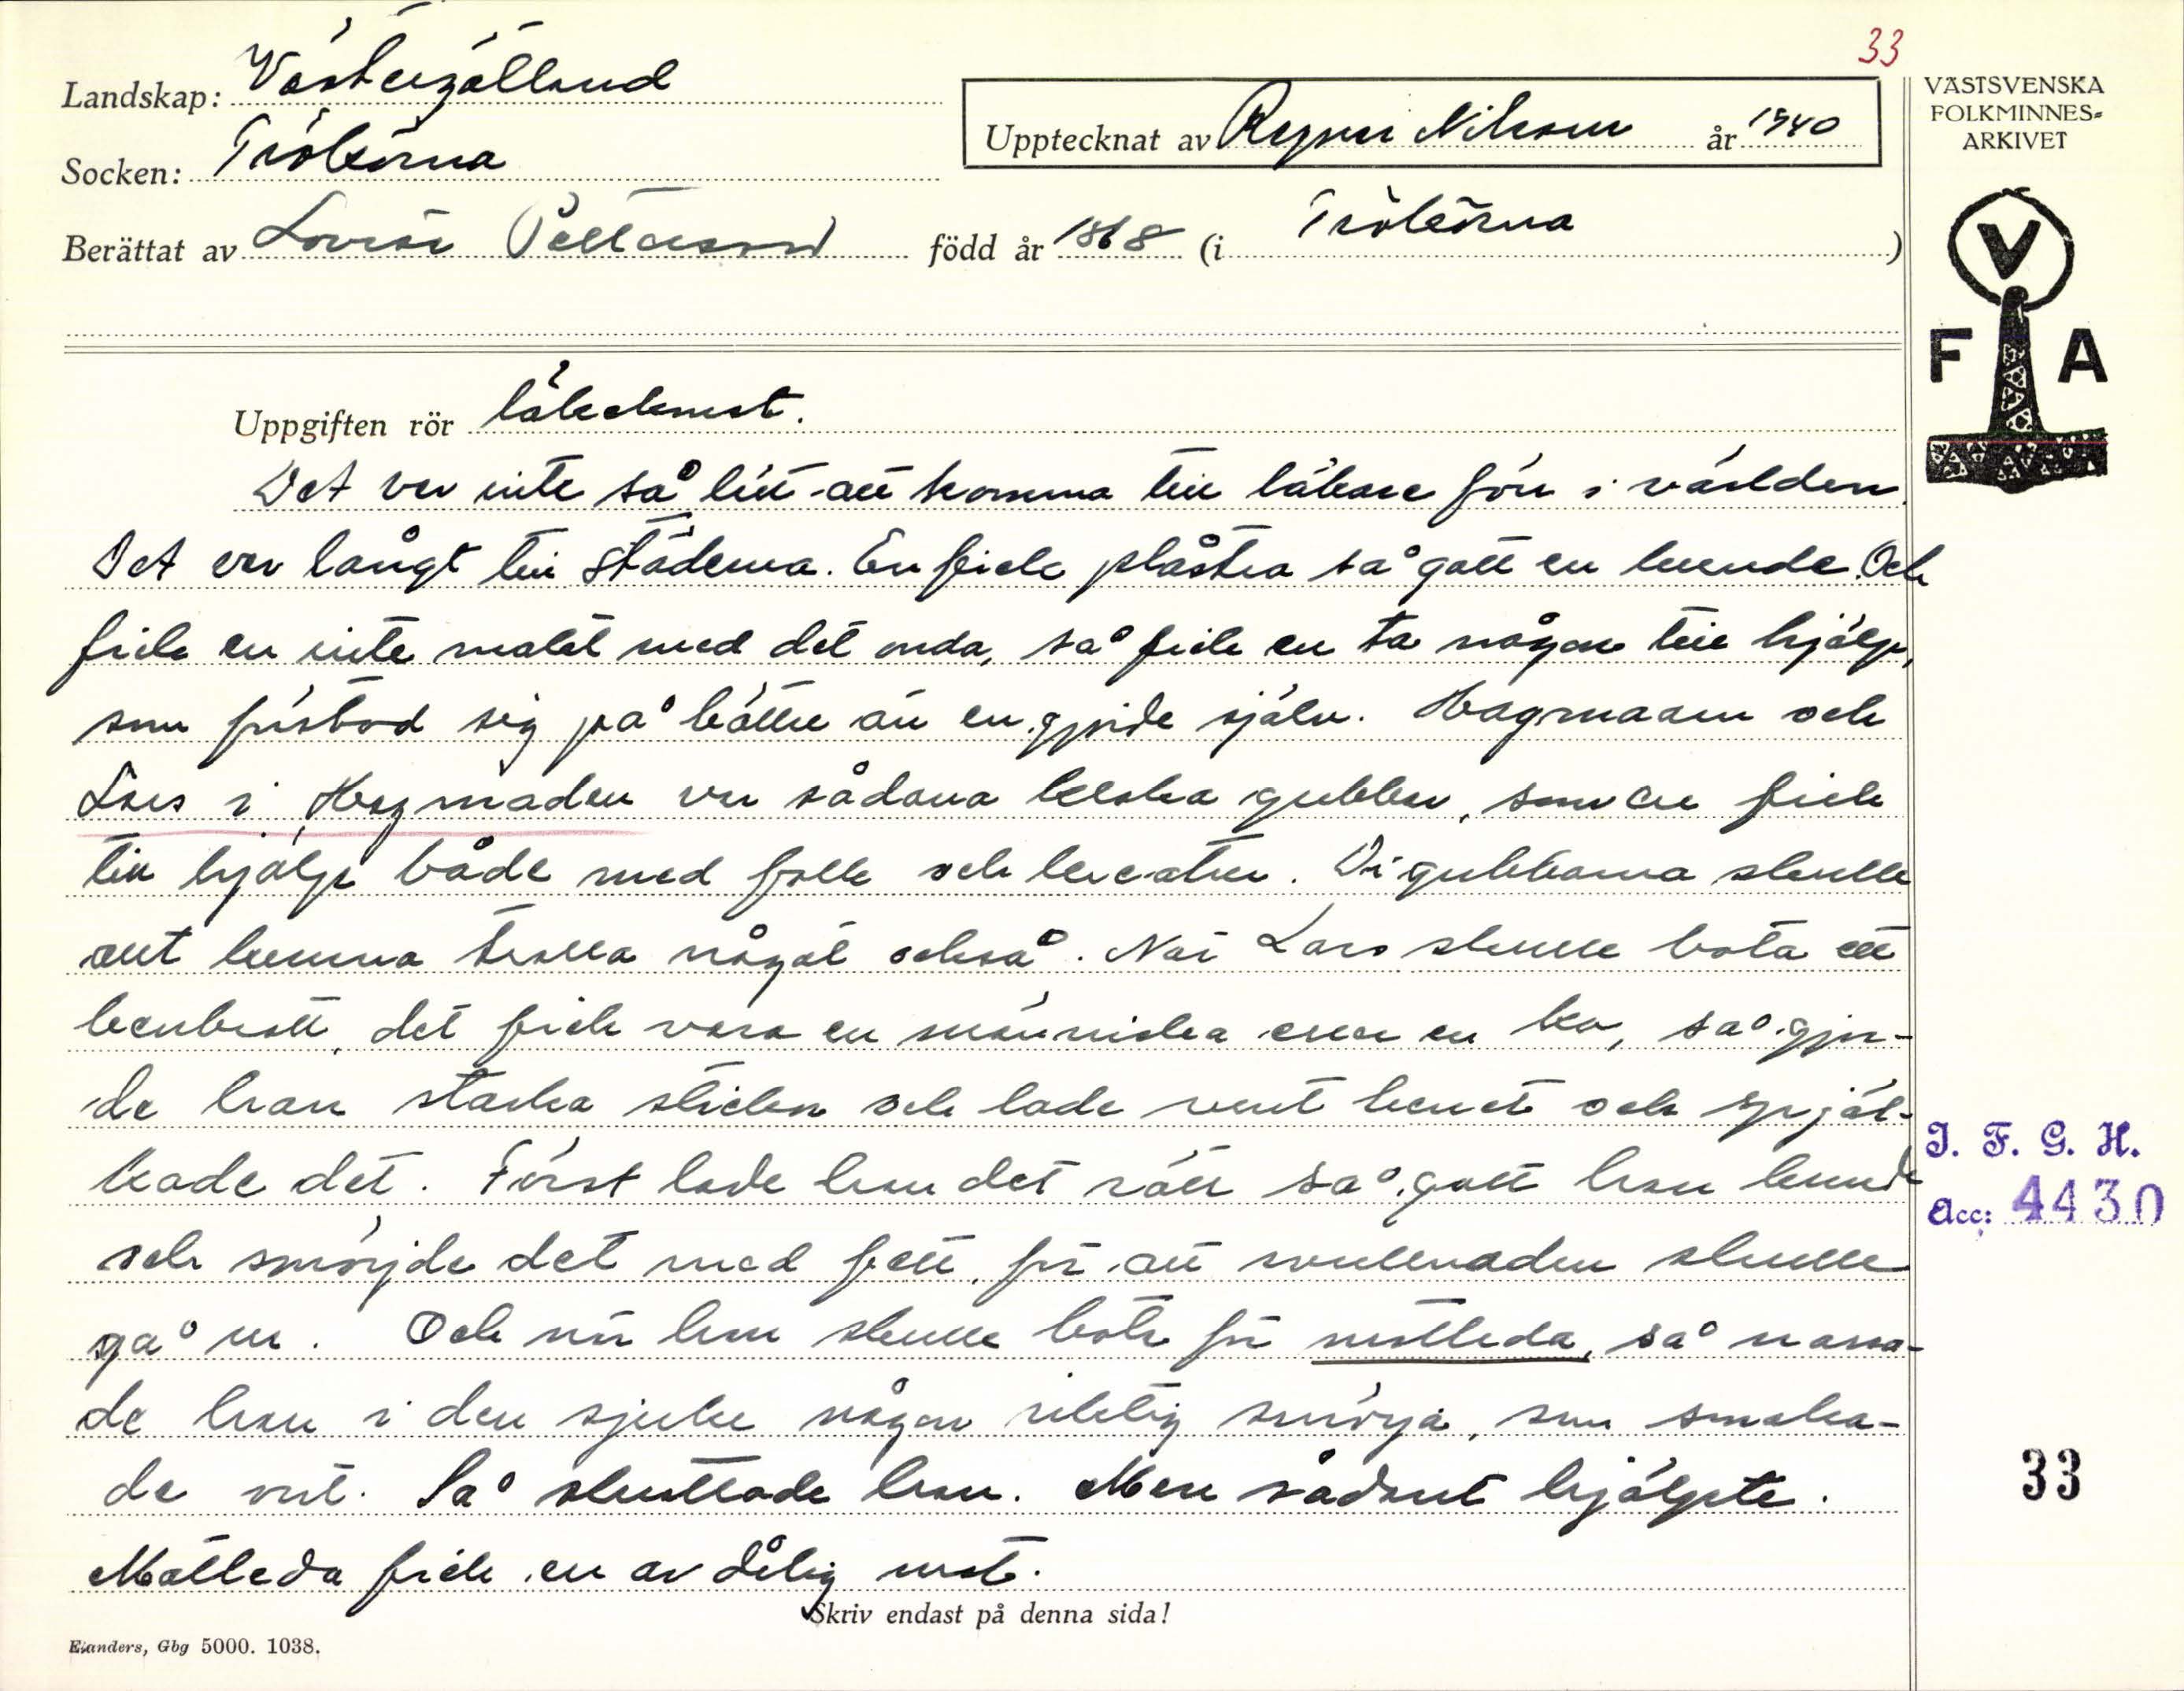 33
Landskap: Västergötland
Socken: Trökörna
Upptecknat av Ragnar Nilsson år 1940
Berättat av Lovisa Pettersson född år 1868 (i Trökörna )
VÄSTSVENSKA
FOLKMINNES-
ARKIVET
V
F A
Uppgiften rör läkekonst.
Det var inte så lätt att komma till läkare förr i världen.
Det var långt till städerna. En fick plåstra så gott en kunde. Och
fick en inte makt med det onda, så fick en ta någon till hjälp,
som förstod sig på bättre än en gjorde själv. Hagmaarn och
Lars i Hagmaden var sådana kloka gubbar, som en fick
till hjälp både med folk och kreatur. Di gubbarna skulle
allt kunna trolla något också. När Lars skulle bota ett
benbrott, det fick vara en människa eller en ko, så gjor-
de han starka stickor och lade runt benet och spjäl-
kade det. Först lade han det rätt så gott han kunde
och smörjde det med fett, för att svullnaden skulle
gå ur. Och när han skulle bota för motleda, så massa-
de han i den sjuke någon riktig smörja, som smaka-
de ont. Så sluttade han. Men sådant hjälpte.
Matleda fick en av dålig mat.
Skriv endast på denna sida!
Elanders, Gbg 5000. 1038.
I. F. G. H.
Acc: 4430
33